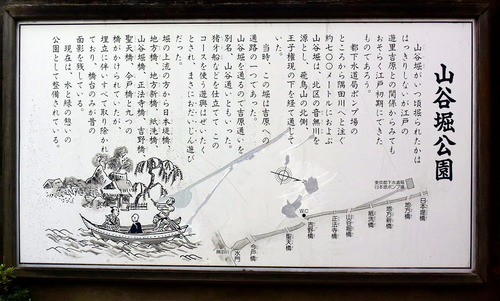 山谷堀公園
山谷堀がいつ頃掘られたかは
はっきりしないが江戸の
遊里吉原との関係からみても
おそらく江戸初期にできた
ものであろう。
都下水道局ポンプ場の
ところから隅田川へと注ぐ
約七〇〇メートルにおよぶ
山谷堀は、北区の音無川を
源とし、飛鳥山の北側、
王子権現の下を経て通じて
いた。
当時、この堀は吉原への
通路の一つであった。
山谷堀を通るので吉原通いを
別名、山谷通いともいった。
猪牙船などを仕立てて、この
コースを使う遊興はぜいたく
とされ、まさにおだいじん遊び
だった。
堀の上流の方から日本堤橋、
地方橋、地方新橋、紙洗橋、
山谷堀橋、正法寺橋、吉野橋、
聖天橋、今戸橋と九つの
橋がかけられていたが、
埋立に伴いすべて取り除かれ
ており、橋台のみが昔の
面影を残している。
現在は、水と緑の憩いの
公園として整備されている。
東京都下水道局
日本堤ポンプ場
日本堤橋
地方橋
地方新橋
紙洗橋
山谷堀橋
正法寺橋
吉野橋
WC
聖天橋
今戸橋
水門
隅田川